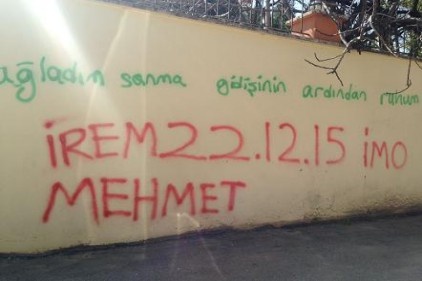 ağladım sanma gidişinin ardından ruhum
İREM 22.12.15 İMO
MEHMET